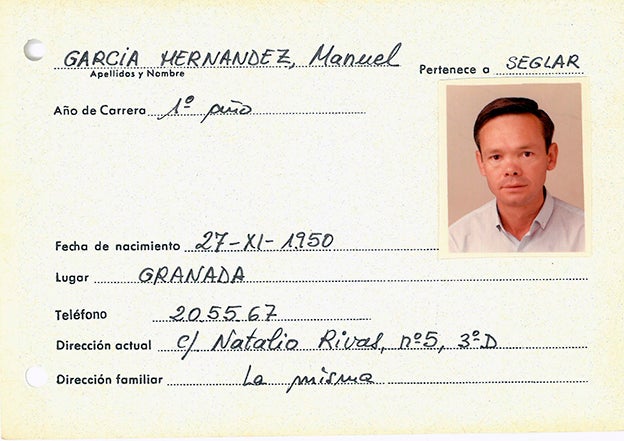 GARCIA HERNANDEZ, Manuel
Apellidos y Nombre
Pertenece a SEGLAR
Año de Carrera 1º año
Fecha de nacimiento 27-XI-1950
Lugar GRANADA
Teléfono 20.55.67
Dirección actual c/ Natalio Rivas, nº5, 3ºD
Dirección familiar La misma